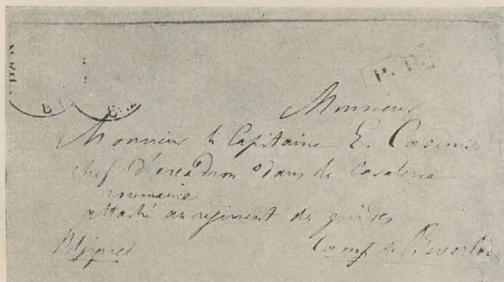 P.D.
Monsieur
Monsieur le Capitaine E. Casimir
chef d'escadron dans la Cavalerie
roumaine
attaché au régiment des guides
Belgique Camp de Beverloo